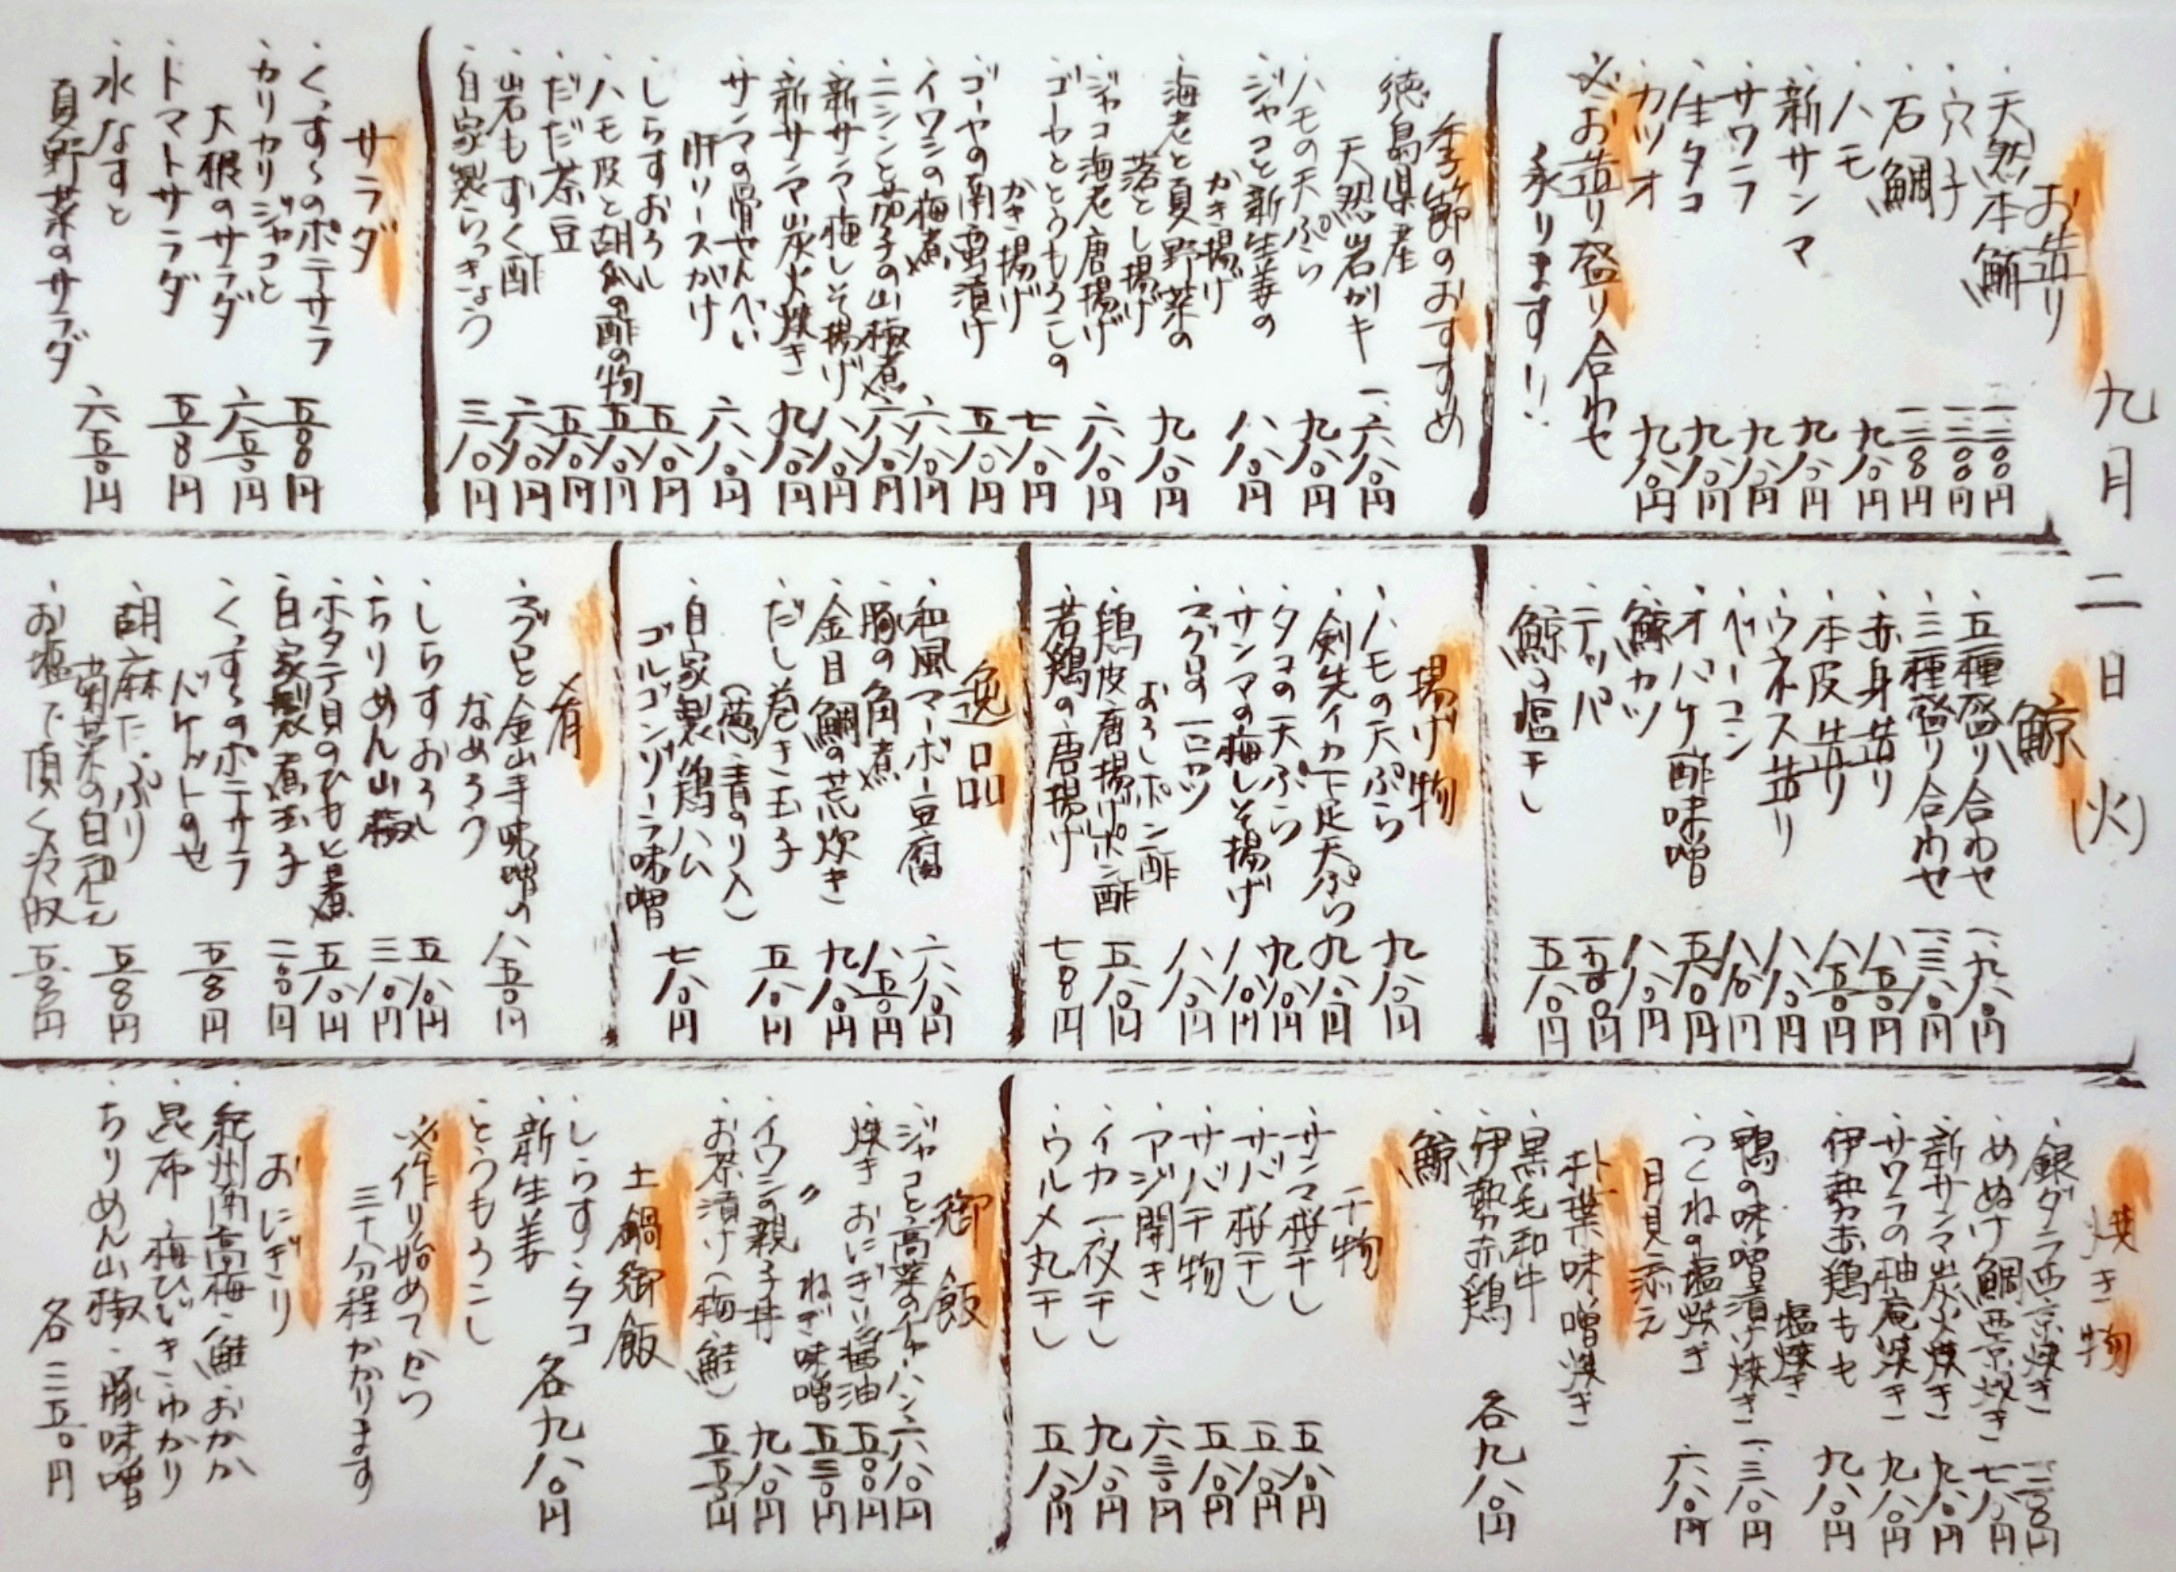 九月二日(火)
お造り
・天然本鮪 一、二〇〇円
・穴子 一、二〇〇円
・石鯛 一、二〇〇円
・ハモ 九八〇円
・新サンマ 九八〇円
・サワラ 九八〇円
・生タコ 九八〇円
・カツオ 九八〇円
※お造り盛り合わせ
承ります!!
季節のおすすめ
・徳島県産
天然岩ガキ 一、六八〇円
・ハモの天ぷら 九八〇円
・ジャコと新生姜の
かき揚げ 八八〇円
・海老と夏野菜の
落とし揚げ 九八〇円
・ジャコ海老唐揚げ 六八〇円
・ゴーヤととうもろこしの
かき揚げ 七八〇円
・ゴーヤの南蛮漬け 五八〇円
・イワシの梅煮 六八〇円
・ニシンと茄子の山椒煮 六八〇円
・新サンマ梅しそ揚げ 八八〇円
・新サンマ炭火焼き 九八〇円
・サンマの骨せんべい
肝ソースがけ 六八〇円
・しらすおろし 五八〇円
・ハモ皮と胡瓜の酢の物 五八〇円
・だだ茶豆 五八〇円
・岩もずく酢 六八〇円
・自家製らっきょう 三八〇円
サラダ
・くっすーのポテサラ 五〇〇円
・カリカリジャコと
大根のサラダ 六五〇円
・トマトサラダ 五〇〇円
・水なすと
夏野菜のサラダ 六五〇円
鯨
・五種盛り合わせ 一、九八〇円
・三種盛り合わせ 一、三八〇円
・赤身造り 八五〇円
・本皮造り 八五〇円
・ウネス造り 八八〇円
・ベーコン 八八〇円
・オバケ酢味噌 五八〇円
・鯨カツ 八八〇円
・テッパ 一、五〇〇円
・鯨の塩干し 五八〇円
揚げ物
・ハモの天ぷら 九八〇円
・剣先イカ下足天ぷら 九八〇円
・タコの天ぷら 九八〇円
・サンマの梅しそ揚げ 八八〇円
・マグロの一口カツ
おろしポン酢 八八〇円
・鶏皮唐揚げポン酢 五八〇円
・若鶏の唐揚げ 七〇〇円
逸品
・和風マーボー豆腐 六八〇円
・豚の角煮 八五〇円
・金目鯛の荒炊き 九八〇円
・だし巻き玉子
(葱・青のり入) 五八〇円
・自家製鶏ハム
ゴルゴンゾーラ味噌 七八〇円
肴
・マグロと金山寺味噌の
なめろう 八五〇円
・しらすおろし 五八〇円
・ちりめん山椒 三八〇円
・ホタテ貝のひもと煮 五八〇円
・自家製煮玉子 二〇〇円
・くっすーのポテサラ
バケットのせ 五〇〇円
・胡麻たっぷり
菊菜の白和え 五〇〇円
・お塩で頂く冷奴 五〇〇円
焼き物
・銀ダラ西京焼き 一、二〇〇円
・めぬけ鯛西京焼き 七八〇円
・新サンマ炭火焼き 九八〇円
・サワラの柚庵焼き 九八〇円
・伊勢赤鶏もも
塩焼き 九八〇円
・鴨の味噌漬け焼き 一、三八〇円
・つくねの塩焼き
月見添え 六八〇円
朴葉味噌焼き
・黒毛和牛
・伊勢赤鶏
・鯨 各九八〇円
干物
・サンマ桜干し 五八〇円
・サバ桜干し 五八〇円
・サバ干物 五八〇円
・アジ開き 六三〇円
・イカ一夜干し 九八〇円
・ウルメ丸干し 五八〇円
御飯
・ジャコと高菜のチャーハン 六八〇円
・焼きおにぎり醤油 五〇〇円
〃 ねぎ味噌 五三〇円
・イワシの親子丼 九八〇円
・お茶漬け(梅・鮭) 五五〇円
土鍋御飯
・しらす・タコ
・新生姜
・とうもろこし 各九八〇円
※作り始めてから
三十分程かかります
おにぎり
・紀州南高梅・鮭・おかか
・昆布・梅ひじき・ゆかり
・ちりめん山椒・豚味噌
各三五〇円